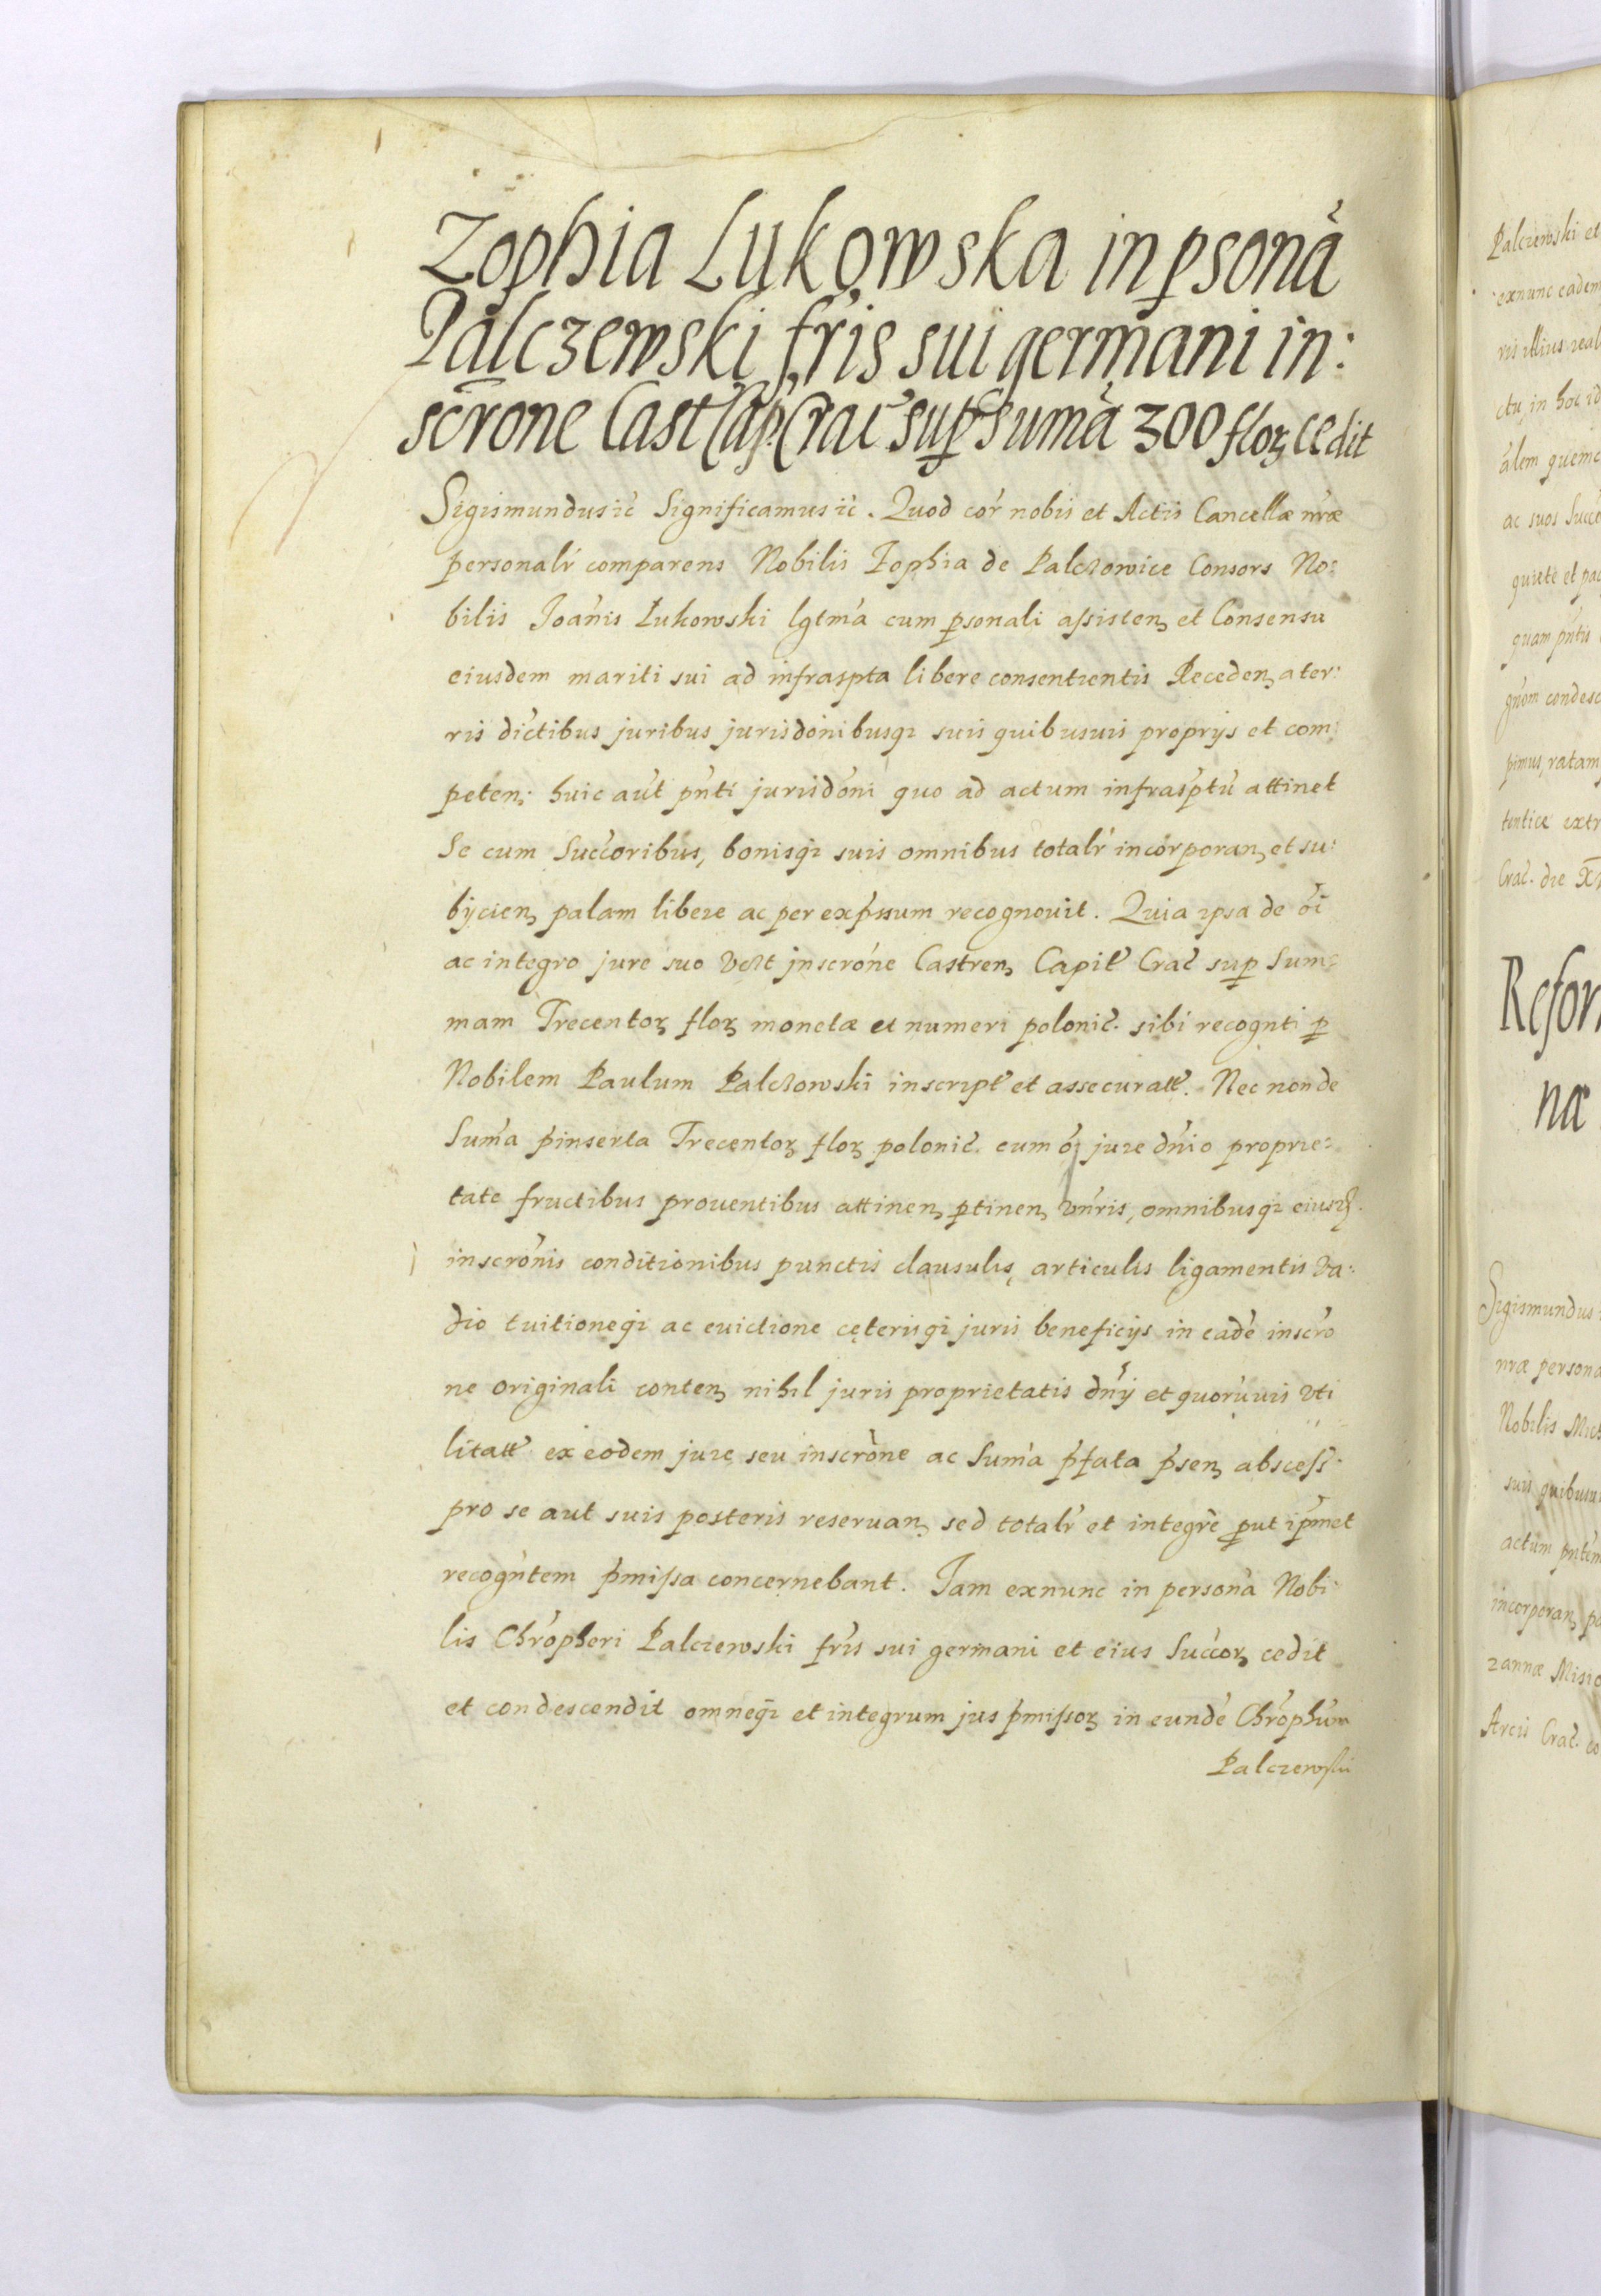 Zophia Lukowska in psonà
Palczewski fris sui germani in:
scrone Cast Cap. Crac sup Sumà 300 flor cedit
Sigismundus ic̃ Significamus ic̃. Quod cor nobis et Actis Cancellæ nræ
personalr comparens Nobilis Zophia de Palczowice Consors No:
bilis Joanis Lukowski lgtma cum psonali assisten et Consensu
eiusdem mariti sui ad infraspta libere consentientis Receden a ter:
ris dictibus juribus jurisdonibusqz suis quibusuis proprijs et com:
peten: huic aut pnti jurisdoni quo ad actum infrasptu attinet
Se cum Succoribus, bonisqz suis omnibus totalr incorporan et su:
bijcien palam libere ac per expssum recognouit. Quia ipsa de oi
ac integro jure suo vest inscrone Castren Capit Crac sup Sum:
mam Trecentor flor monetæ et numeri polonic. sibi recognti p
Nobilem Paulum Palczowski inscript et assecuratt. Nec non de
Suma pinserta Trecentor flor polonic. cum oi jure dnio proprie:
tate fructibus prouentibus attinen ptinen vnris, omnibusqz eiusd
inscronis conditionibus punctis clausulis, articulis ligamentis va:
dio tuitioneqz ac euictione cęterisqz juris beneficijs in eade inscro
ne originali conten nihil juris proprietatis dnij et quoruuis vti
litatt ex eodem jure seu inscrone ac Suma pfata psen abscess:
pro se aut suis posteris reseruan sed totalr et integre put ipmet
recogntem pmissa concernebant. Jam exnunc in persona Nobi:
lis Chropheri Palczewski fris sui germani et eius Succor cedit
et condescendit omneqz et integrum jus pmissor in eunde Chrophum
Palczewski
Palczewski et
exnunc eadem
ris illius real
ctu, in hoc id
alem quemc
ac suos Succo
quiete et pac
quam pntis
gnom condesc
pimus, ratam
tenticæ extr
Crac. die X
Refor
næ
Sigismundus
nræ persona
Nobilis Mich
suis quibusu
actum pntem
incorporan pa
zannæ Misio
Arcis Crac. co